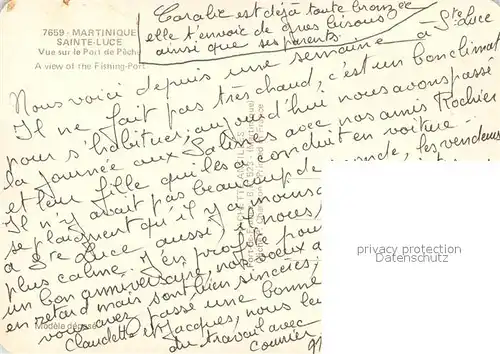 7659 - MARTINIQUE
SAINTE-LUCE
Vue sur le Port de Pêche
A view of the Fishing-Port
Coralie est déjà toute bronzée
elle t'envoie de gros bisous
ainsi que ses parents.
Nous voici depuis une semaine à Ste Luce
Il ne fait pas très chaud, c'est un bon climat
pour s'habituer, aujourd'hui nous avons passé
la journée aux Salines avec nos amis Rochier
et leur fille qui les a conduit en voiture.
Il n'y avait pas beaucoup de monde, les vendeurs
se plaignent qu'il y a moins
à Ste Luce aussi, nous
plus calme. J'en profite pour
un bon anniversaire, nos voeux
en retard mais sont bien sincères,
vous avez passé une bonne
Claudette et Jacques, nous
du travail avec
courrier
Modèle déposé
privacy protection
Datenschutz